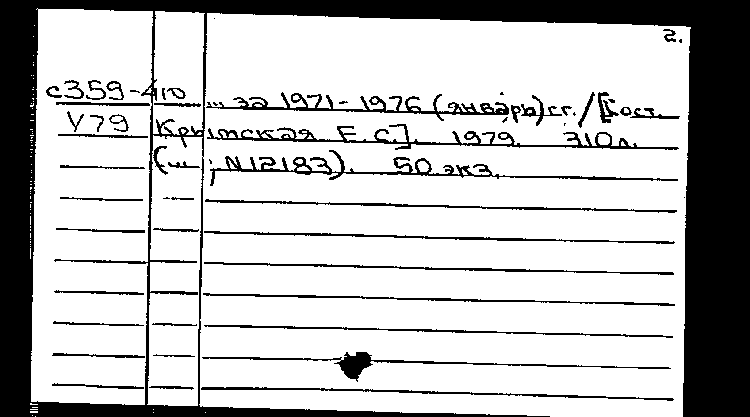 2.
с359-410 ... за 1971-1976 (январь) гг. / [Сост.
У79 Крымская Е.С.]. 1979. 310л.
(... ; N12183). 50 экз.